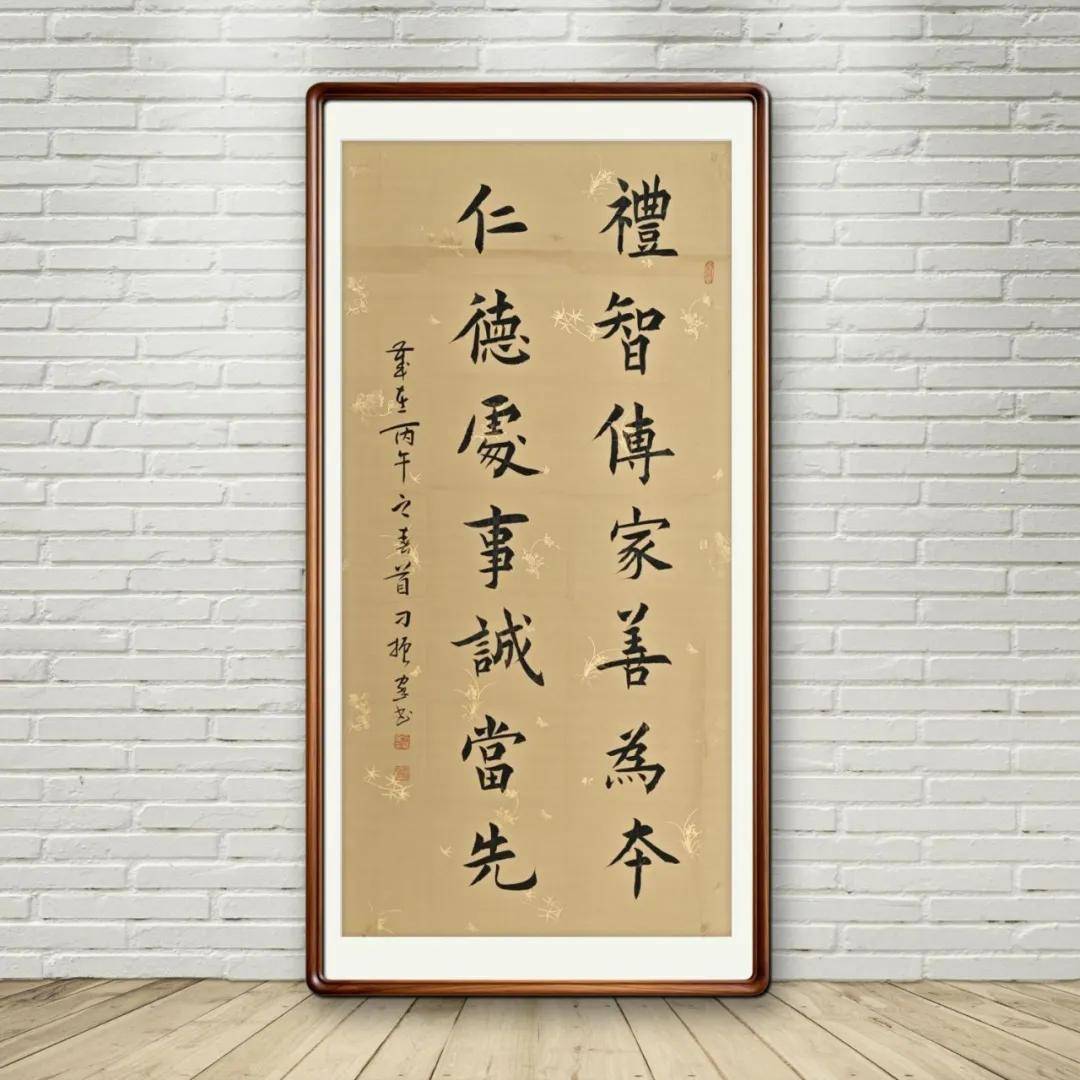 禮智傳家善為本
仁德處事誠當先
歲在丙午之春首刁振宇书